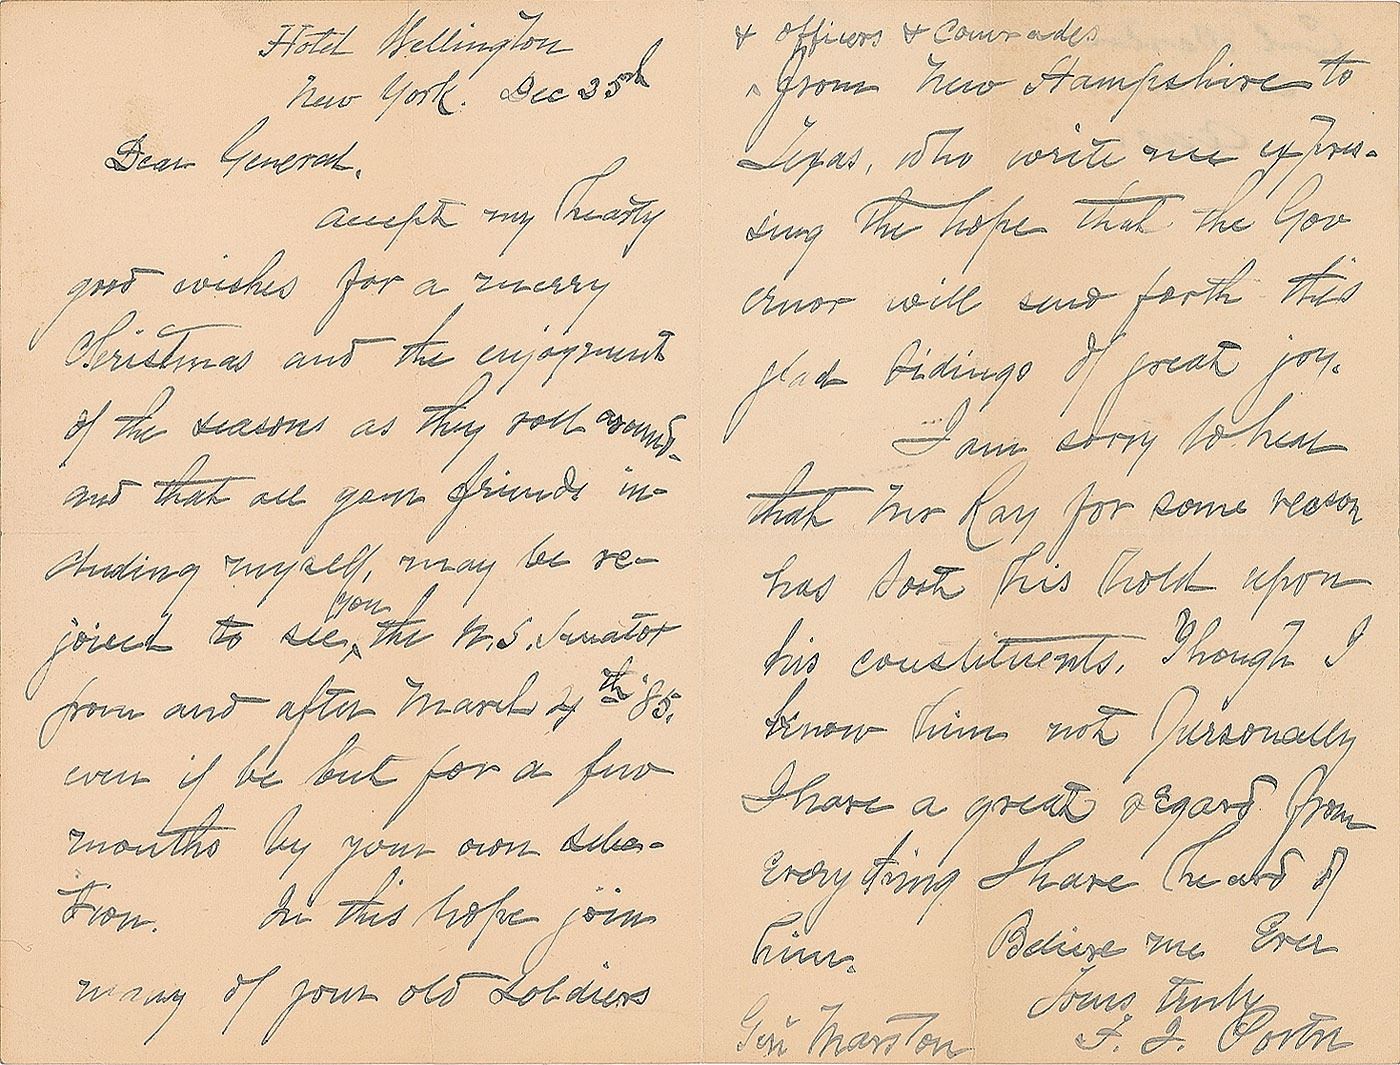 Hotel Wellington
New York. Dec 25th
Dear General,
accept my hearty
good wishes for a merry
Christmas and the enjoyment
of the seasons as they roll around.
and that all your friends in-
cluding myself, may be re-
joiced to see you the U.S. Senator
from and after March 4th '85.
even if be but for a few
months by your own selec-
tion. In this hope join
many of your old soldiers
& officers & comrades
from New Hampshire to
Texas, who write me expres-
sing the hope that the Gov
ernor will send forth this
glad tidings of great joy.
I am sorry to hear
that Mr Ray for some reason
has lost his hold upon
his constituents. Though I
know him not personally
I have a great regard from
everything I have heard of
him. Believe me Ever
Yours truly
F. J. Porter
Gen Marston